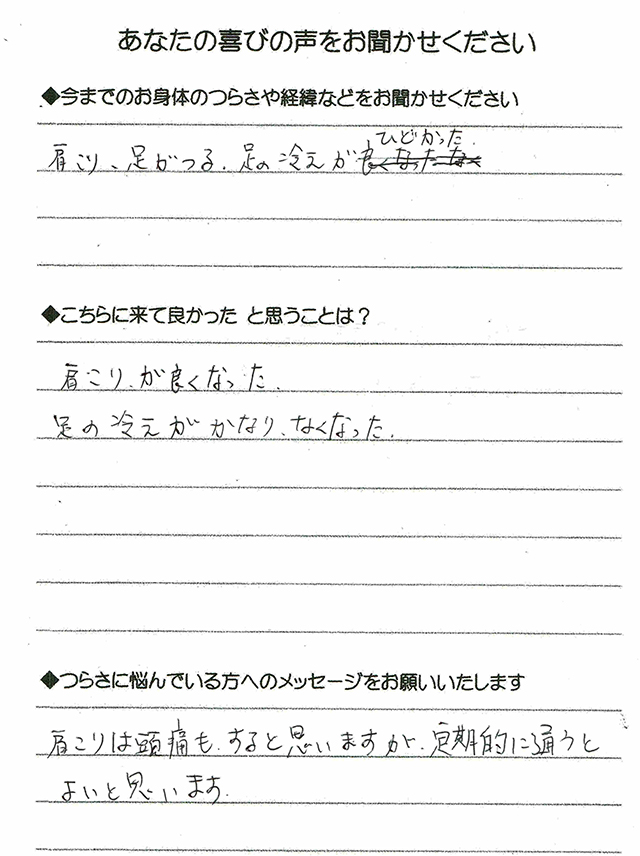 あなたの喜びの声をお聞かせください
◆今までのお身体のつらさや経緯などをお聞かせください
ひどかった.
肩こり、足がつる、足の冷えが良くなった
◆こちらに来て良かった と思うことは？
肩こり、が良くなった.
足の冷えがかなり、なくなった.
◆つらさに悩んでいる方へのメッセージをお願いいたします
肩こりは頭痛も、すると思いますが、定期的に通うと
よいと思います.